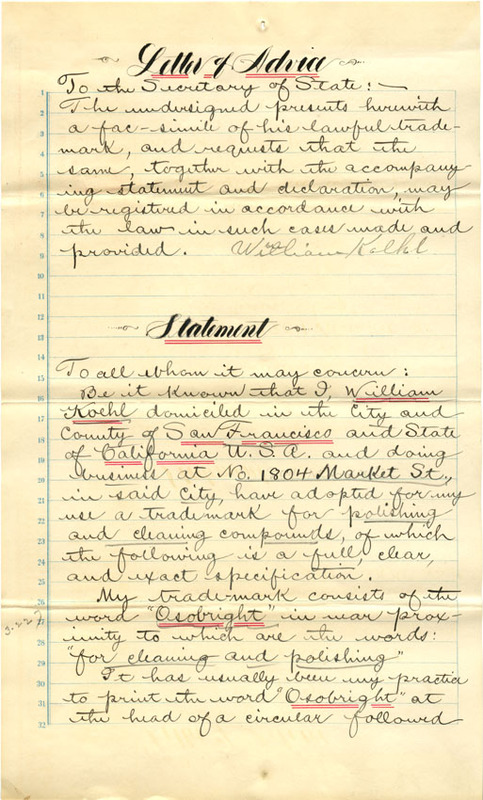 Letter of Advice
To the Secretary of State:—
The undersigned presents herewith
a fac-simile of his lawful trade-
mark, and requests that the
same, together with the accompany-
ing statement and declaration, may
be registered in accordance with
the law in such cases made and
provided. William Koehl
Statement
To all whom it may concern:
Be it known that I, William
Koehl domiciled in the City and
County of San Francisco and State
of California U.S.A. and doing
business at No. 1804 Market St.,
in said City, have adopted for my
use a trademark for polishing
and cleaning compounds, of which
the following is a full, clear,
and exact specification.
My trade-mark consists of the
word "Osobright" in near prox-
imity to which are the words:
"for cleaning and polishing"
It has usually been my practice
to print the word "Osobright" at
the head of a circular followed
1
2
3
4
5
6
7
8
9
10
11
12
13
14
15
16
17
18
19
20
21
22
23
24
25
26
27
28
29
30
31
32